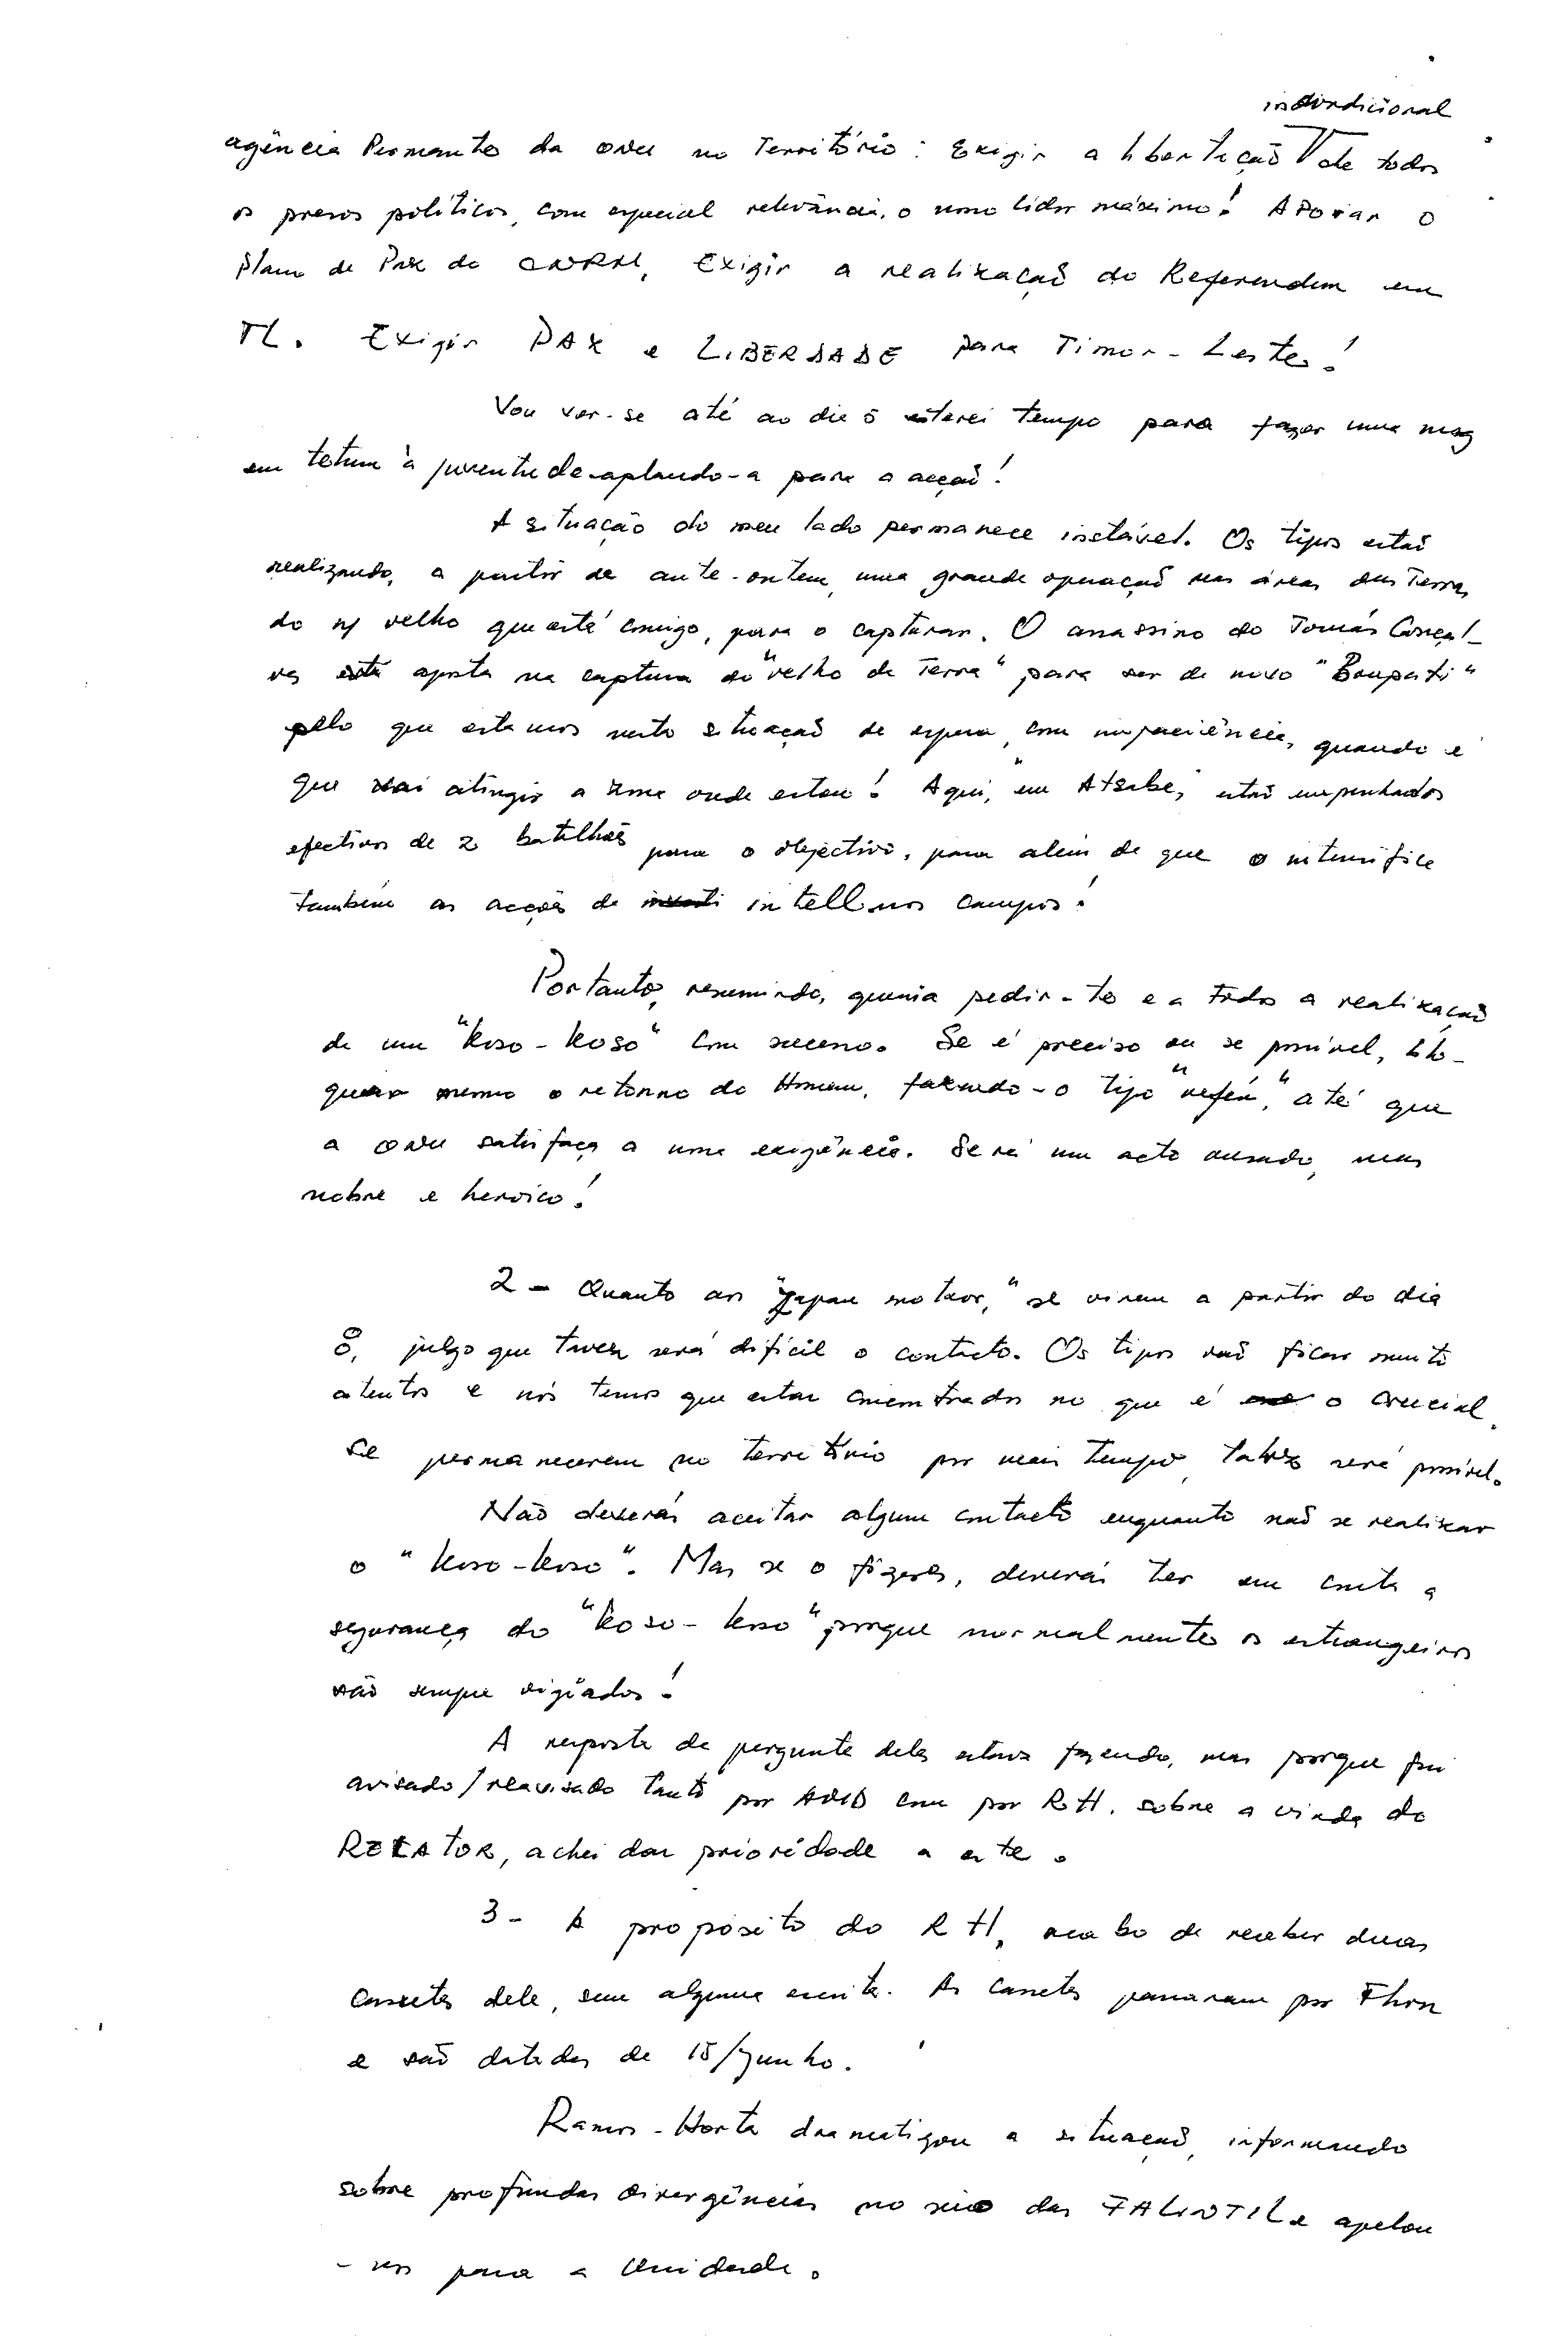 incondicional
agência Permanente da ONU no Território: Exigir a libertação de todos
os presos políticos, com especial relevância, o nosso líder máximo! Apoiar o
Plano de Paz do CNRM, Exigir a realização do Referendum em
TL. Exigir PAZ e LIBERDADE para Timor-Leste!
Vou ver-se até ao dia 5 terei tempo para fazer uma msg
em tetum à juventude apelando-a para a acção!
A situação do meu lado permanece instável. Os tipos estão
realizando, a partir de ante-ontem, uma grande operação nas áreas das Terras
do n/ velho que está comigo, para o capturar. O assassino do Tomás Gonçal-
ves está aposta na captura do "velho da Terra" para ser de novo "Boupati"
pelo que estamos nesta situação de espera, com impaciência, quando é
que vai atingir a zona onde estou! Aqui, "em Atsabe, estão empenhados
efectivos de 2 batalhões para o objectivo, para além de que o intensifica
também as acções de intell nos campos!
Portanto, resumindo, queria pedir-te e a todos a realização
de um "koso-koso" com sucesso. Se é preciso ou se possível, blo-
quear mesmo o retorno do Homem, fazendo-o tipo "refén", até que
a ONU satisfaça a uma exigência. Será um acto ousado, mas
nobre e heroico!
2 - Quanto aos "Japan motor," se virem a partir do dia
8, julgo que talvez será difícil o contacto. Os tipos vão ficar muito
atentos e nós temos que estar concentrados no que é o crucial.
Se permanecerem no território por mais tempo, talvez será possível.
Não deverás aceitar algum contacto enquanto não se realizar
o "koso-koso". Mas se o fizeres, deverás ter em conta a
segurança do "koso-koso" porque normalmente os estrangeiros
são sempre vigiados!
A resposta da pergunta deles estava fazendo, mas porque fui
avisado/reavisado tanto por como por R.H. sobre a vinda do
RELATOR, achei dar prioridade a este.
3 - A propósito do RH, acabo de receber duas
cassetes dele, sem alguma escrita. As cassetes passaram por
e são datadas de 15/Junho.
Ramos-Horta dramatizou a situação, informando
sobre profundas divergências no seio das FALINTIL e apelou
-nos para a Unidade.